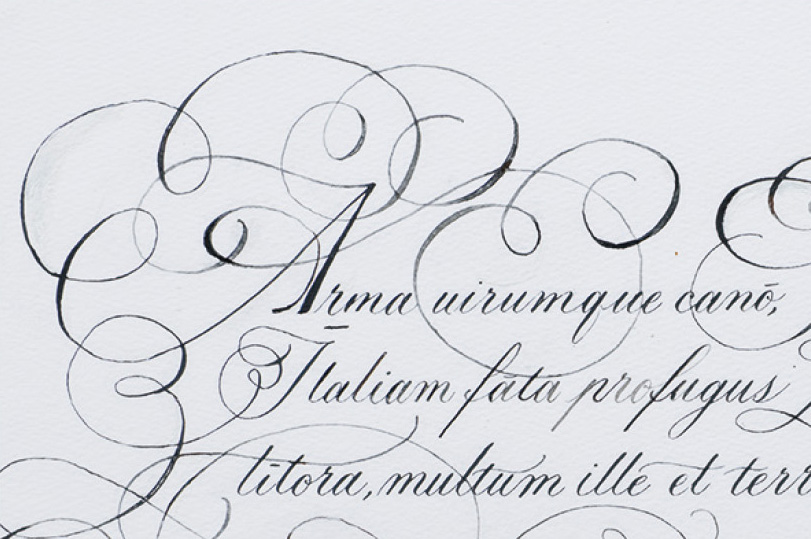 Arma uirumque canō,
Ītaliam fātō profugus
lītora, multum ille et terr